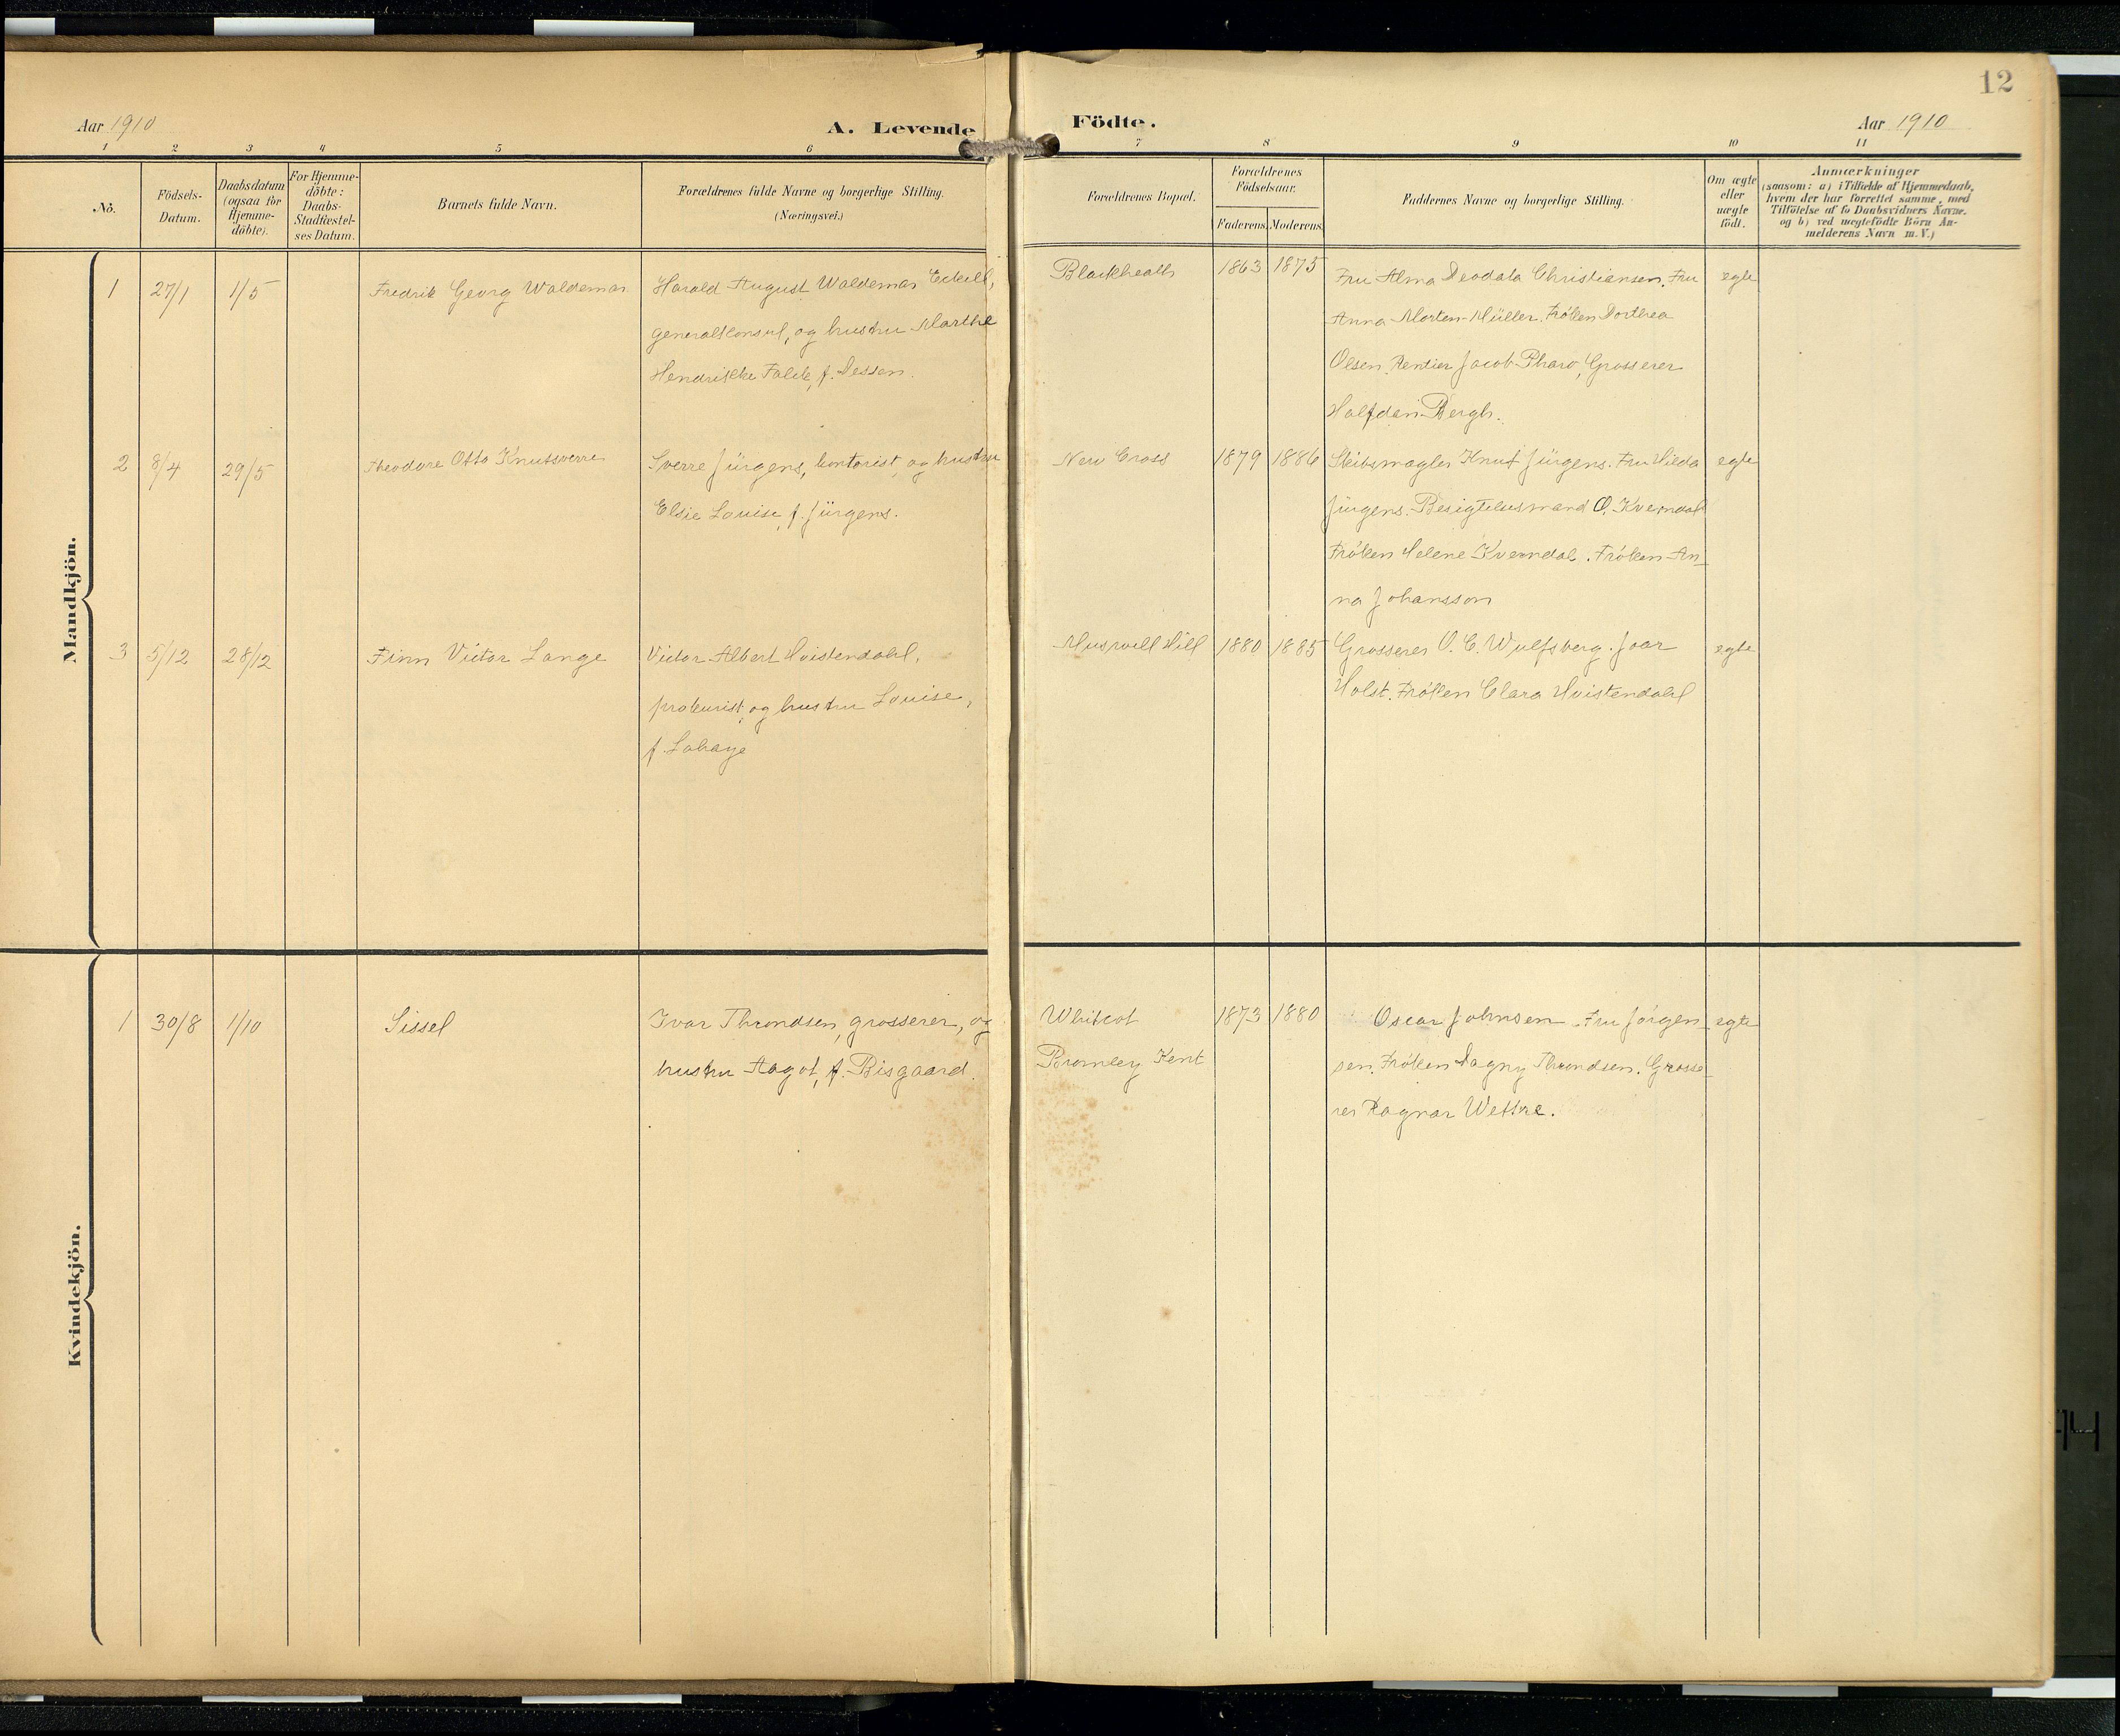 12
Aar 1910
A. Levende Födte.
Aar 1910
1 2 3 4 5 6 7 8 9 10 11
No.
Födsels-
Datum.
Daabsdatum
(ogsaa for
Hjemme-
döbte).
For Hjemme-
döbte:
Daabs-
Stadfæstel-
ses Datum.
Barnets fulde Navn.
Forældrenes fulde Navne og borgerlige Stilling.
(Næringsvei.)
Forældrenes Bopæl.
Forældrenes
Födselsaar.
Faderens. Moderens.
Faddernes Navne og borgerlige Stilling.
Om ægte
eller
uægte
födt.
Anmærkninger
(saasom: a) i Tilfælde af Hjemmedaab,
hvem der har forrettet samme, med
Tilföielse af to Daabsvidners Navne.
og b) ved uægtefödte Börn An-
melderens Navn m. V.)
Mandkjön.
1 27/1 1/5
Fredrik Georg Waldemar
Harald August Waldemar Eckell,
generalkonsul, og hustru Marthe
Hendrikke Falck, f. Dessen.
Blackheath
1863 1875
Fru Alma Deodata Christiansen. Fru
Anna Morten-Müller. Fröken Dorthea
Olsen. Rentier Jacob Pharo, Grosserer
Halfdan Bergh.
egte
2 8/4 29/5
Theodore Otto Knutsverre
Sverre Jürgens, kontorist, og hustru
Elsie Louise, f. Jürgens.
New Cross
1879 1886
Skibsmægler Knut Jürgens. Fru Hilda
Jürgens. Besigtelsesmand O. Kverndal
Fröken Helene Kverndal. Fröken An-
na Johansson
egte
3 5/12 28/12
Finn Victor Lange
Victor Albert Hvistendahl,
prokurist, og hustru Louise,
f. Lahaye
Muswell Hill
1880 1885
Grosserer O. C. Wulfsberg. Joar
Holst. Fröken Clara Hvistendahl
egte
Kvindekjön.
1 30/8 1/10
Sissel
Ivar Throndsen, grosserer, og
hustru Aagot, f. Bisgaard.
Whitcot
Bromley Kent
1873 1880
Oscar Johnsen. Fru Jörgen-
sen. Fröken Dagny Throndsen. Grosse-
rer Ragnar Wettre.
egte